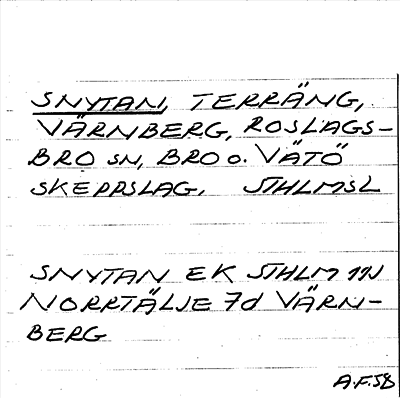 SNYTAN, TERRÄNG,
VÄRNBERG, ROSLAGS-
BRO SN, BRO O. VÄTÖ
SKEPPSLAG, STHLMSL
SNYTAN EK STHLM 11N
NORRTÄLJE 7d VÄRN-
BERG
A.F.58